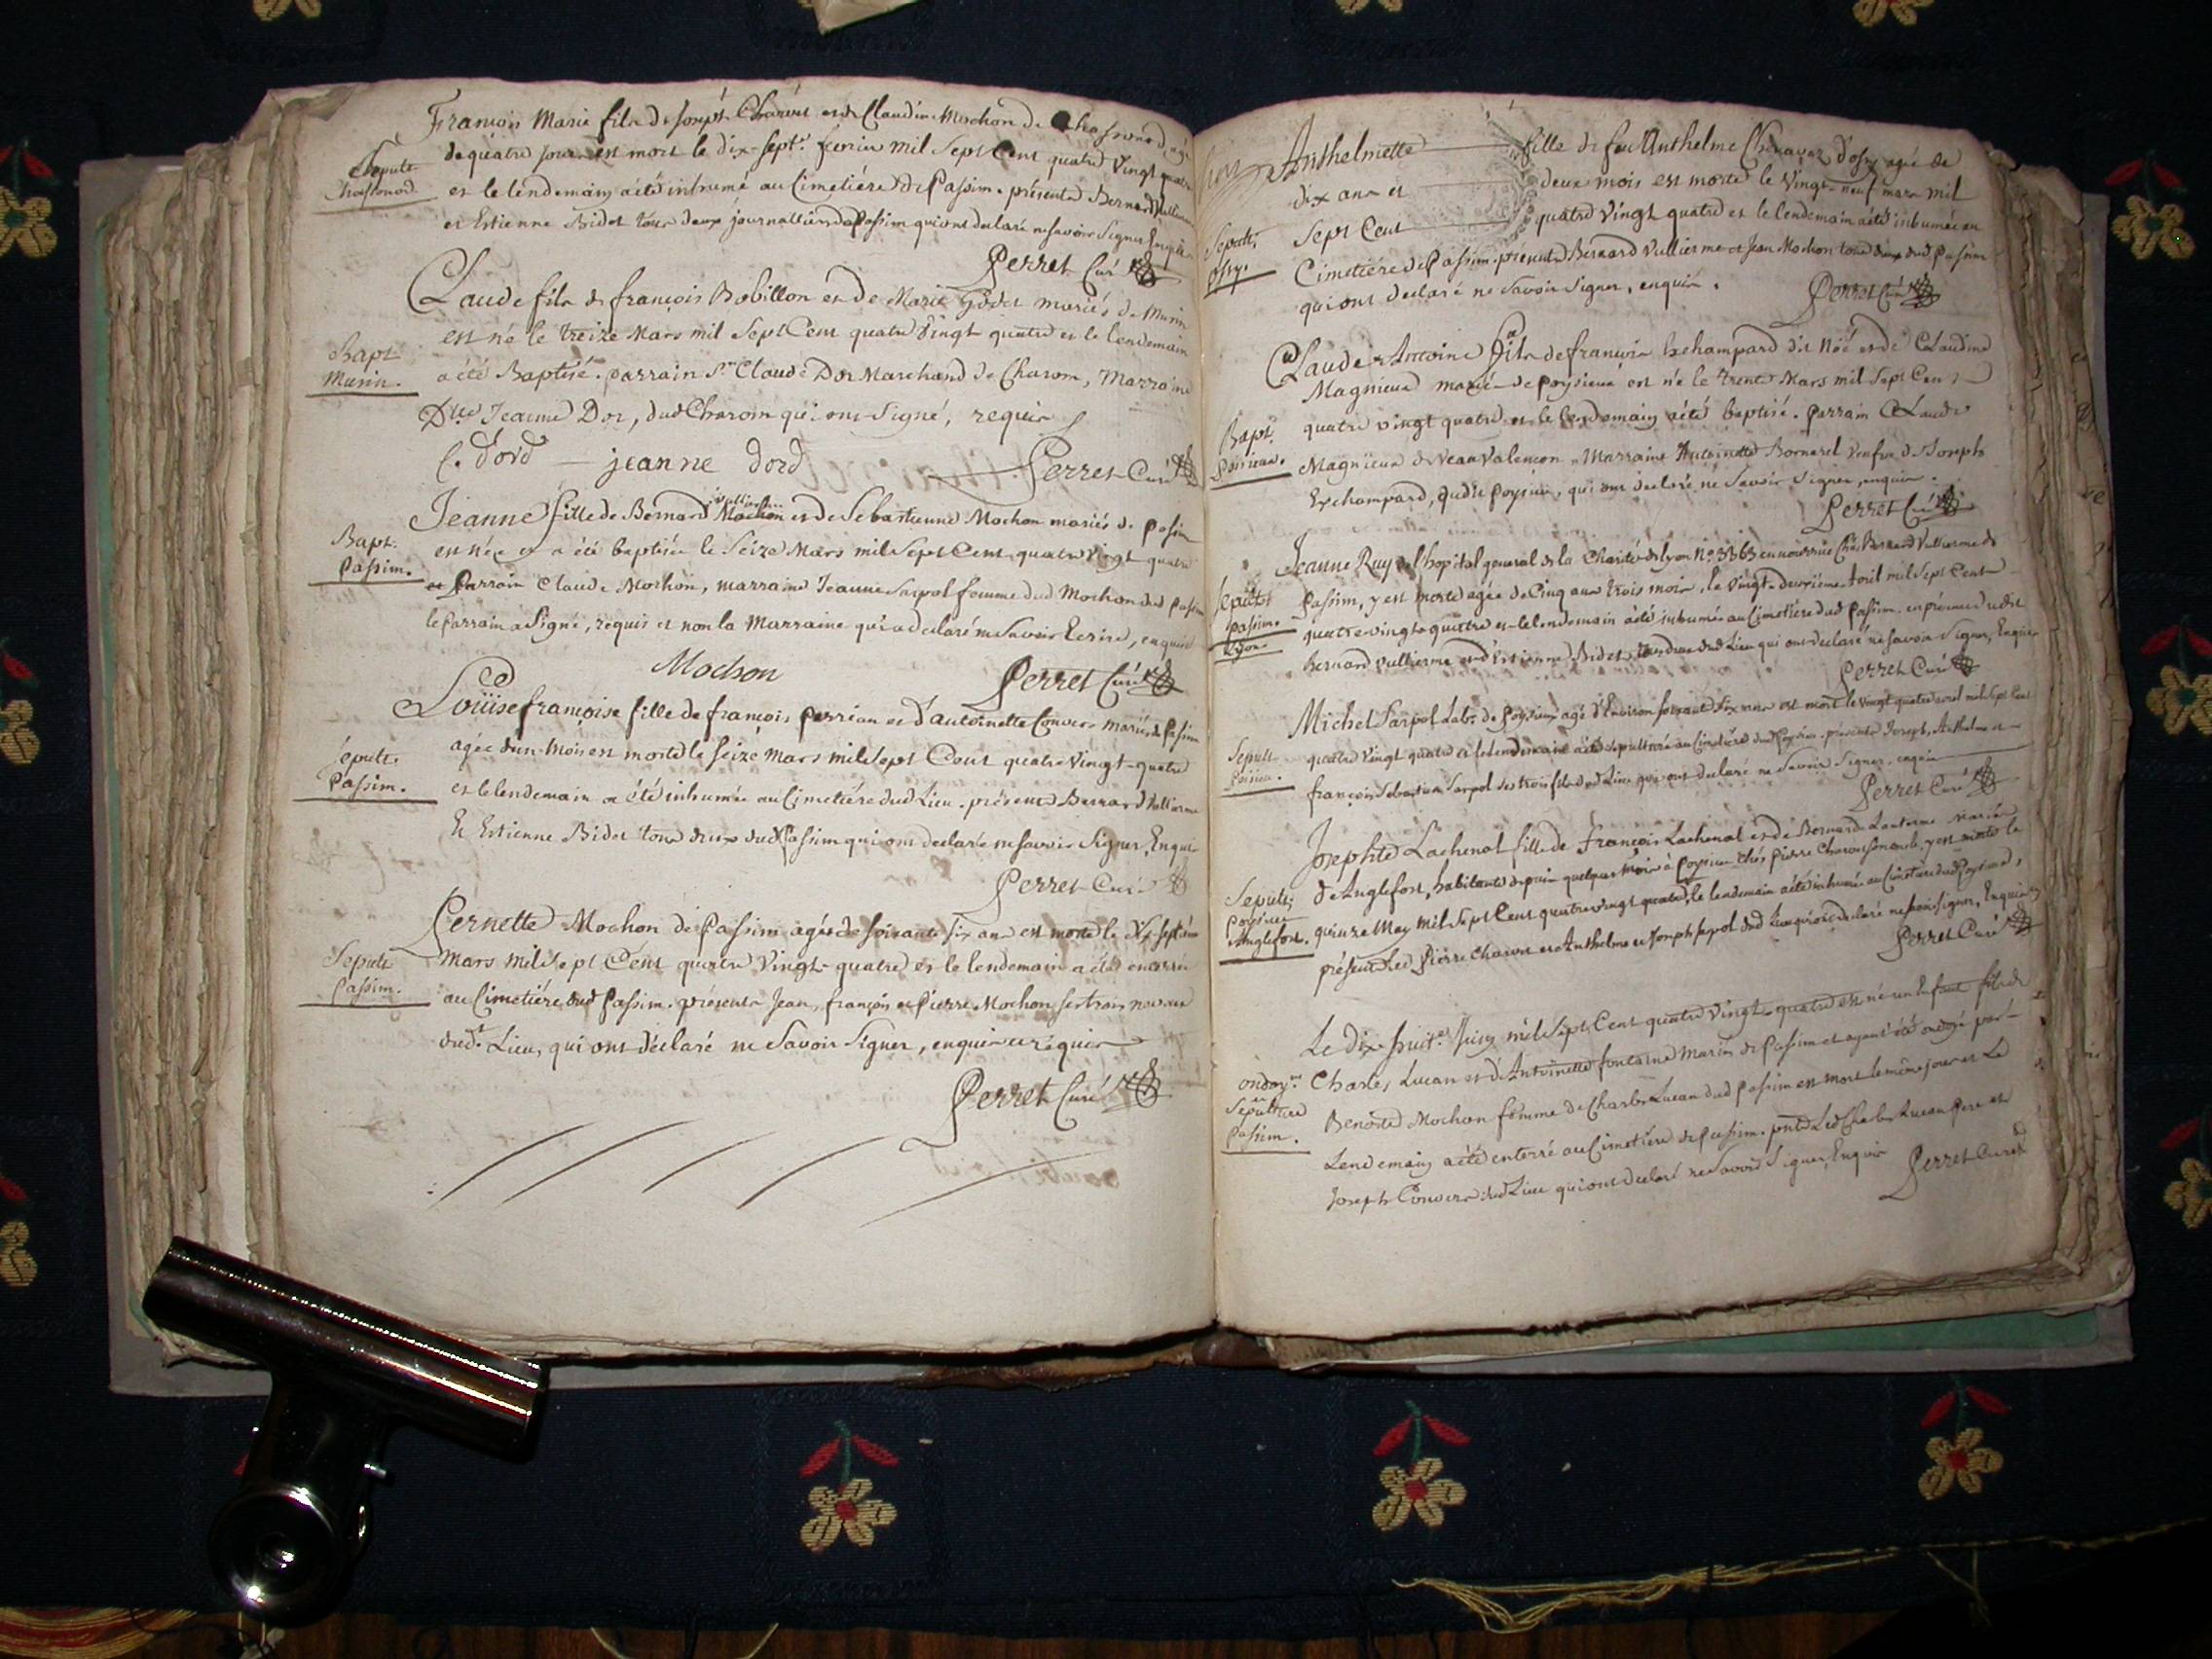 François Marie fils de Joseph Charvet et de Claudine Mochon de
de quatre jours est mort le dix-sept.e fevrier mil Sept Cent quatre Vingt quatre
Sepult.
Chassonod.
et le lendemain a été inhumé au Cimetiére de Passim. présents Bernard Vullierme
et Estienne Bidet tous deux journalliers de Passim qui ont declaré ne savoir Signer Enquis
Perret Curé
Claude fils de françois Bobillon et de Marie Godet mariés de Murin
est né le treize Mars mil Sept Cent quatre Vingt quatre et le lendemain
Bapt.
Murin.
a été Baptisé. parrain Sr Claude Dor Marchand de Charom, Marraine
Dlle Jeanne Dor, dud Charom qui ont Signé, requis
C. dord — jeanne dord
Perret Curé
Jeanne fille de Bernard Mochon Vullierme et de Sebastienne Mochon mariés de Passim
Bapt.
Passim.
est née et a été baptisée le Seize Mars mil Sept Cent quatre Vingt quatre
et Parrain Claude Mochon, marraine Jeanne Sarpol femme dud Mochon dud Passim
le Parrain a Signé, requis et non la Marraine qui a declaré ne Savoir Ecrire, enquise
Mochon
Perret Curé
Loüise françoise fille de françois perrian et d'antoinette Convers mariés de Passim
Sepult.
Passim.
agée d'un Mois est morte le Seize Mars mil Sept Cent quatre Vingt-quatre
et le lendemain a été inhumée au Cimetiére dud Lieu. présents Bernard Vullierme
Et Estienne Bidet tous deux dud Passim qui ont declaré ne Savoir Signer, Enquis
Perret Curé
Pernette Mochon de Passim agée de Soixante six ans est morte le dix-septiéme
Sepult.
Passim.
Mars mil Sept Cent quatre Vingt-quatre et le lendemain a été enterrée
au Cimetiére dud Passim. présents Jean, françois et Pierre Mochon ses trois neveux
dud.t Lieu, qui ont déclaré ne Savoir Signer, enquis et requis
Perret Curé
Anthelmette fille de feu Anthelme Chenavaz d'osry agée de
dix ans et deux mois est morte le Vingt-neuf mars mil
Sepult.
osry.
Sept Cent quatre Vingt quatre et le lendemain a été inhumée au
Cimetiére de Passim. présents Bernard Vullierme et Jean Mochon tous deux dud Passim
qui ont declaré ne Savoir Signer, enquis.
Perret Curé
Claude Antoine fils de françois Exchampard dit Noë et de Claudine
Magnieux mariés de poysieux est né le trente Mars mil Sept Cent
Bapt.
poisieux.
quatre vingt quatre et le lendemain a été baptisé. Parrain Claude
Magnieux de Veau Valencon Marraine Antoinette Bornarel Veufve de Joseph
Exchampard, dudit Poysieu, qui ont declaré ne Savoir Signer, enquis.
Perret Curé
Jeanne Ruy de l'hopital general de la Charité de lyon N.o 3363 en nourrice Chés Bernard Vullierme de
Sepult.
passim.
Lyon.
Passim, y est morte agée de Cinq ans trois mois, le Vingt-deuxiéme Avril mil Sept Cent
quatre-vingt-quatre et le lendemain a été inhumée au Cimetiére dud Passim. en présence dudit
bernard Vullierme et d'Estienne Bidet tous deux dud Lieu qui ont declaré ne Savoir Signer, Enquis
Perret Curé
Michel Sarpol Lab.r de Poysieux agé d'Environ soixante Six ans est mort le vingt quatre avril mil Sept Cent
Sepult.
Poisieu.
quatre Vingt quatre et le lendemain a été sepulturé au Cimetiére dud Poysieu. présents Joseph, Anthelme et
françois Sebastien Sarpol ses trois fils dud Lieu qui ont declaré ne Savoir Signer. enquis
Perret Curé
Josephte Lachenal fille de François Lachenal et de Bernarde Lanterme mariés
Sepult.
Poysieu
Anglefort.
d'Anglefort, habitante depuis quelques Mois à Poysieu chés Pierre Charvet y est morte le
quinze May mil Sept Cent quatre vingt quatre, le lendemain a été inhumée au Cimetiére dud Poysieu,
présents led Pierre Charvet et Anthelme et Joseph Sarpol dud Lieu qui ont declaré ne savoir signer, Enquis
Perret Curé
Le dix huit.e Juin mil Sept Cent quatre Vingt-quatre est né un Enfant fils de
ondoy.nt
et
Sepulture
Passim.
Charles Lucan et d'Antoinette fontaine Mariés de Passim et ayant été ondoyé par
Benoite Mochon femme de Charles Lucan dud Passim est mort le même jour et Le
Lendemain a été enterré au Cimetiére de Passim. pnts Led Charles Lucan Pere et
Joseph Convers dud Lieu qui ont declaré ne Savoir Signer, Enquis
Perret Curé